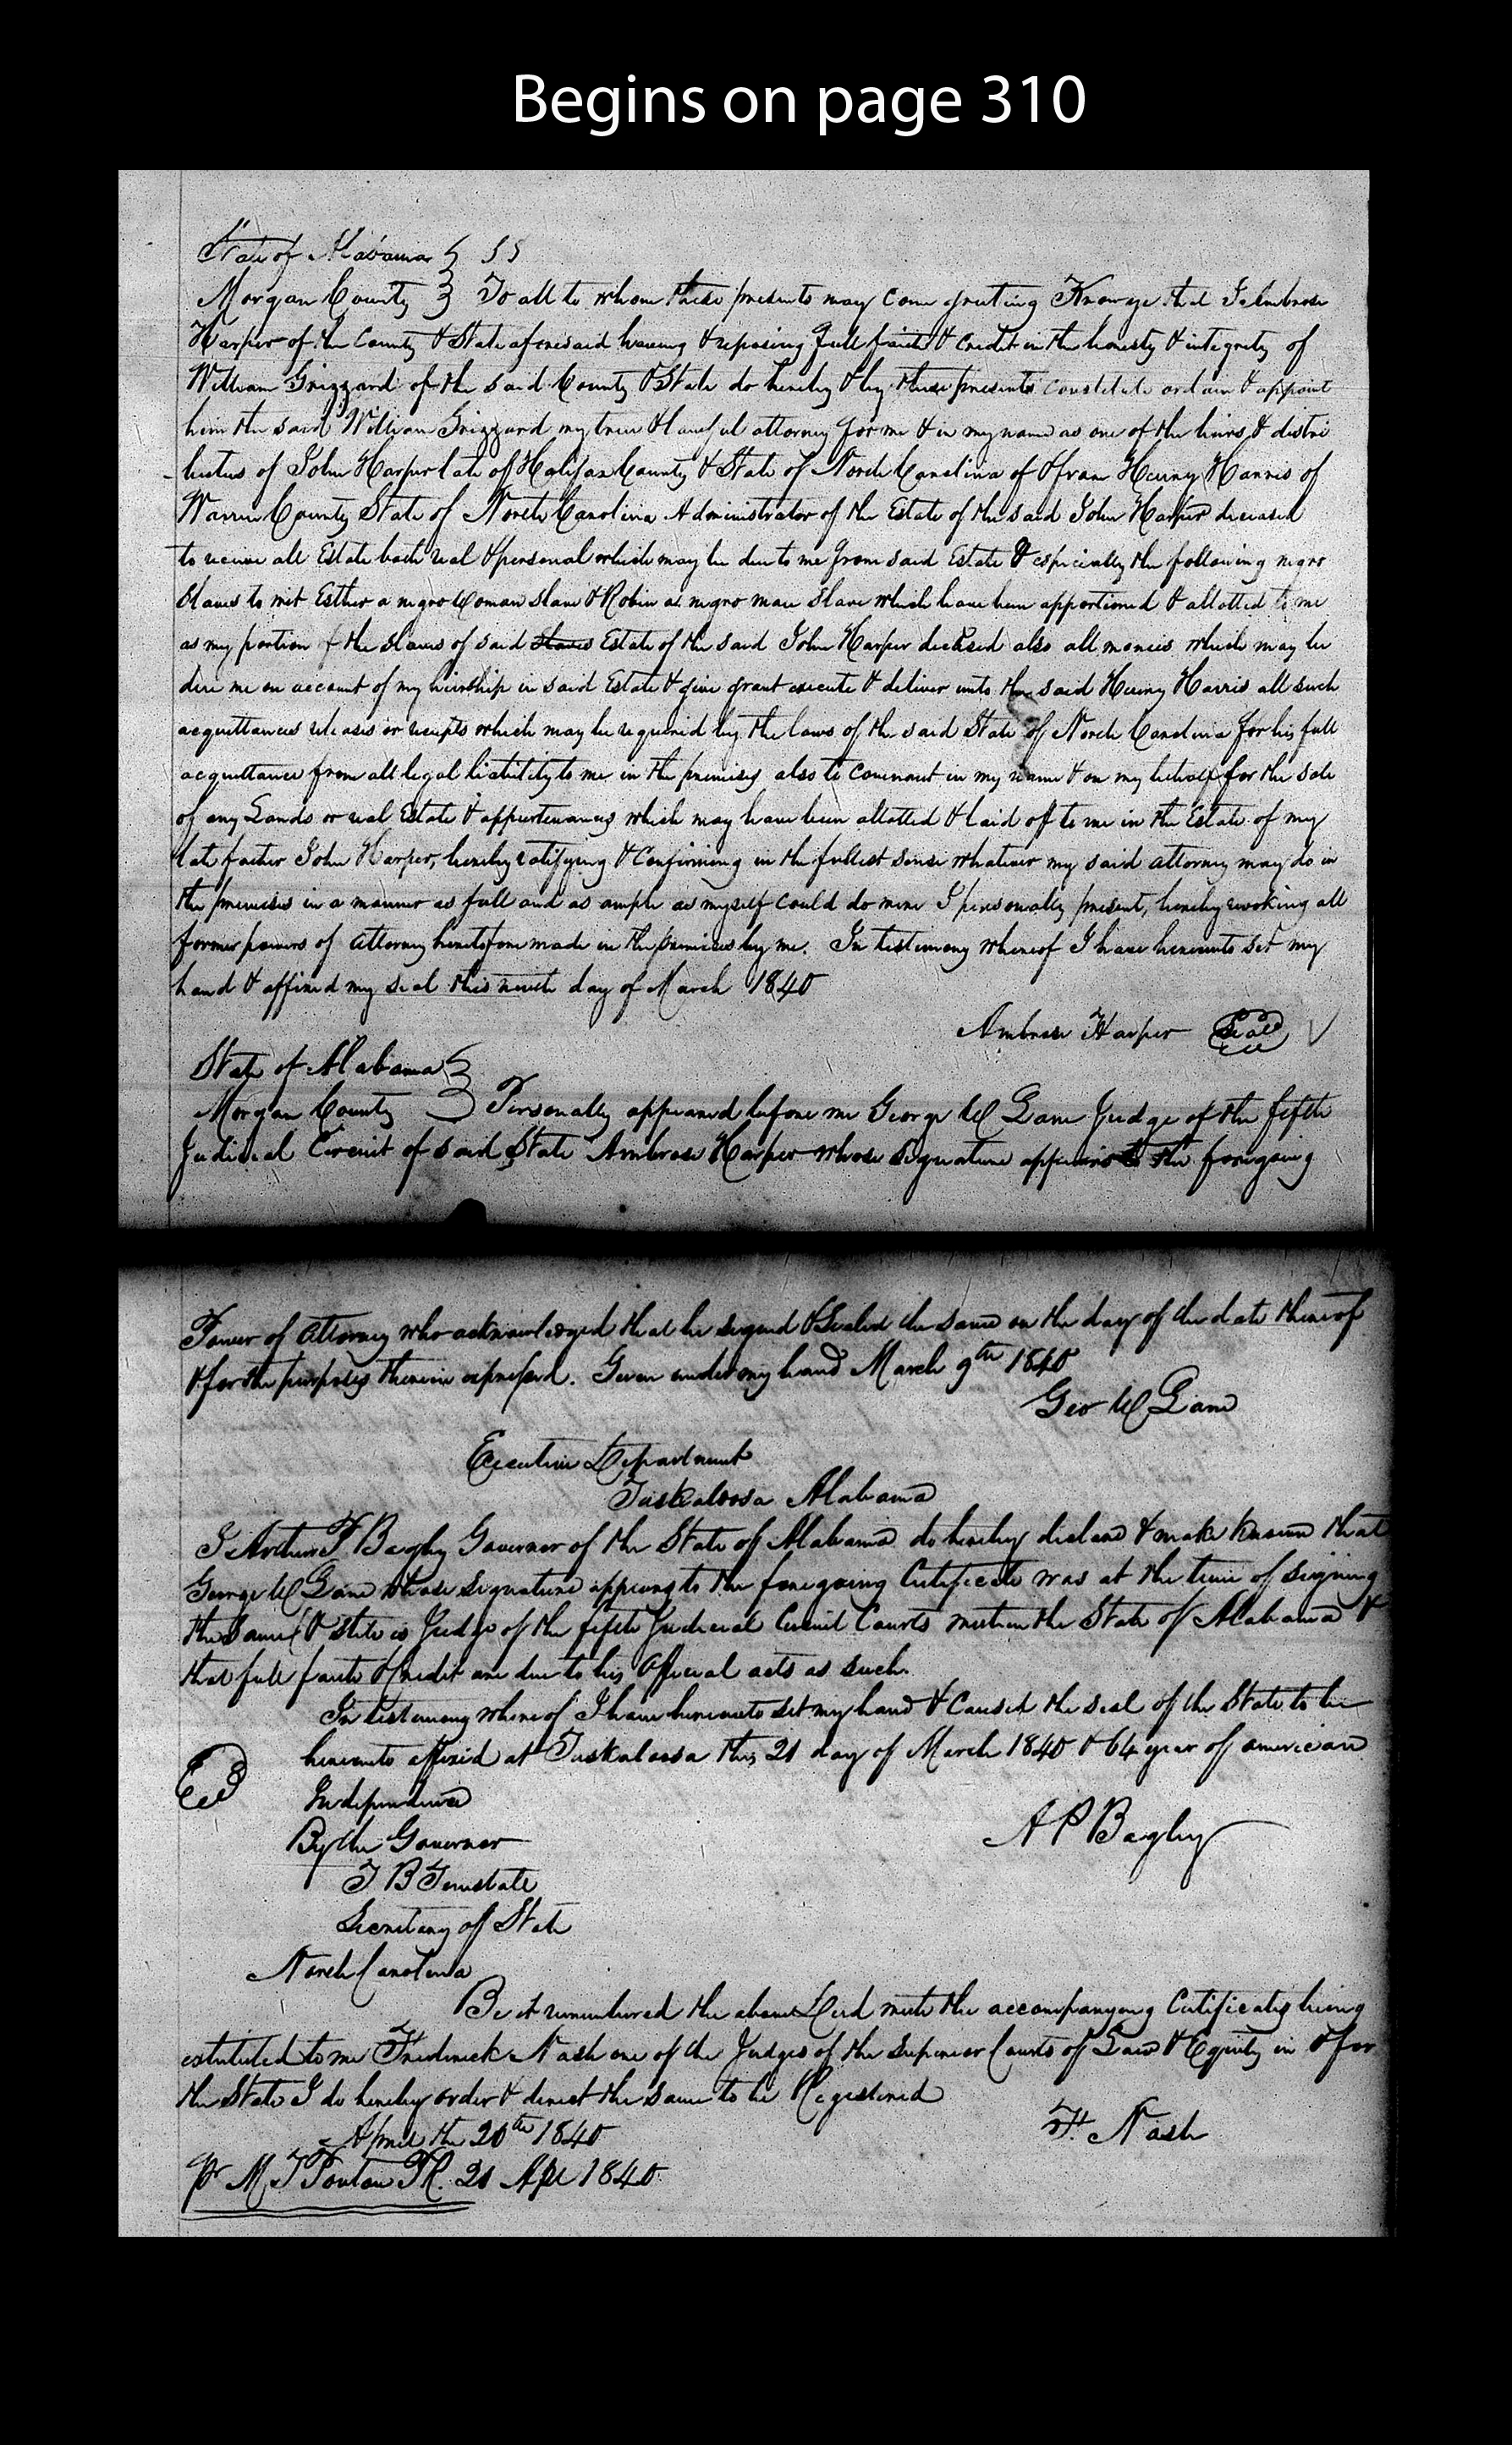 Begins on page 310
State of Alabama } SS
Morgan County } To all to whom these presents may come greeting Know ye that I Ambrose
Harper of the County & State aforesaid having & reposing full faith & credit in the honesty & integrity of
William Grizzard of the said County & State do hereby & by these presents constitute ordain & appoint
him the said William Grizzard my true & lawful attorney for me & in my name as one of the heirs & distri
butees of John Harper late of Halifax County & State of North Carolina of & from Henry Harris of
Warren County State of North Carolina Administrator of the Estate of the said John Harper deceased
to receive all Estate both real & personal which may be due to me from said Estate & especially the following negro
Slaves to wit Esther a negro Woman slave & Robin a negro man Slave which have been apportioned & allotted to me
as my portion of the slaves of said Slaves Estate of the said John Harper deceased also all monies which may be
due me on account of my heirship in said Estate & give grant execute & deliver unto the said Henry Harris all such
acquittances releases or receipts which may be required by the laws of the said State of North Carolina for his full
acquittance from all legal liability to me in the premises also to covenant in my name & on my behalf for the sale
of any Lands or real Estate & appurtenances which may have been allotted & laid off to me in the Estate of my
late father John Harper, hereby ratifying & Confirming in the fullest sense whatever my said attorney may do in
the premises in a manner as full and as ample as myself could do were I personally present, hereby revoking all
former powers of attorney heretofore made in the premises by me. In testimony whereof I have hereunto set my
hand & affixed my seal this ninth day of March 1840
Ambrose Harper Seal
State of Alabama }
Morgan County } Personally appeared before me George W Lane Judge of the fifth
Judicial Circuit of said State Ambrose Harper whose signature appears to the foregoing
Power of Attorney who acknowledged that he signed & Sealed the same on the day of the date thereof
& for the purposes therein expressed. Given under my hand March 9th 1840
Geo W Lane
Executive Department
Tuskaloosa Alabama
I Arthur P Bagby Governor of the State of Alabama do hereby declare & make known that
George W Lane whose signature appears to the foregoing Certificate was at the time of signing
the same & still is Judge of the fifth Judicial Circuit Courts within the State of Alabama &
that full faith & credit are due to his Official acts as such.
In testimony whereof I have hereunto set my hand & caused the seal of the State to be
hereunto affixed at Tuskaloosa this 21 day of March 1840 & 64 year of american
Independence
By the Governor
A P Bagby
T B Tunstall
Secretary of State
North Carolina
Be it remembered the above Deed with the accompanying Certificates being
exhibited to me Frederick Nash one of the Judges of the Superior Courts of Law & Equity in & for
the State I do hereby order & direct the same to be Registered
April the 20th 1840
F. Nash
pr M T Ponton PR. 21 Apl 1840